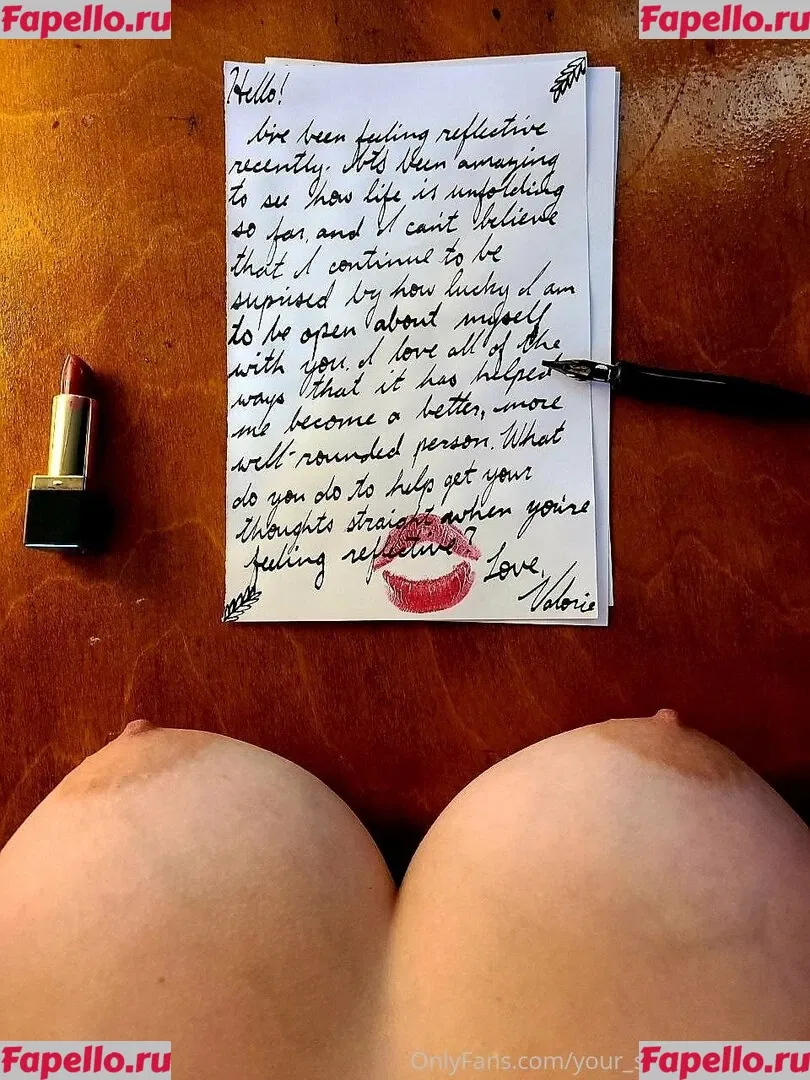 Fapello.ru
Fapello.ru
Hello!
I've been feeling reflective
recently. It's been amazing
to see how life is unfolding
so far, and I can't believe
that I continue to be
suprised by how lucky I am
to be open about myself
with you. I love all of the
ways that it has helped
me become a better, more
well-rounded person. What
do you do to help get your
thoughts straight when you're
feeling reflective?
Love,
Valorie
OnlyFans.com/your_s
Fapello.ru
Fapello.ru